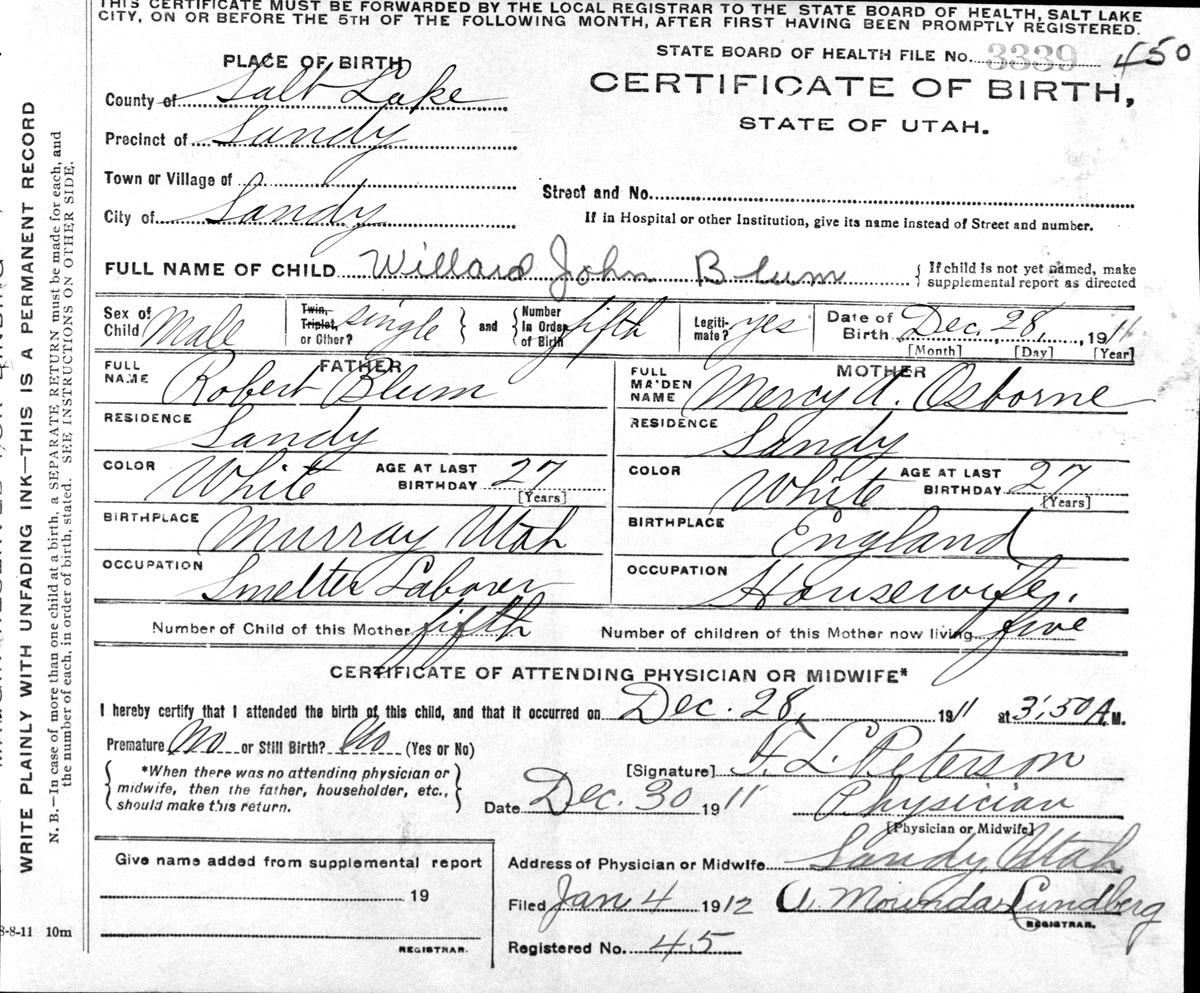 THIS CERTIFICATE MUST BE FORWARDED BY THE LOCAL REGISTRAR TO THE STATE BOARD OF HEALTH, SALT LAKE
CITY, ON OR BEFORE THE 5TH OF THE FOLLOWING MONTH, AFTER FIRST HAVING BEEN PROMPTLY REGISTERED.
STATE BOARD OF HEALTH FILE No. 3339 450
PLACE OF BIRTH
CERTIFICATE OF BIRTH,
STATE OF UTAH.
County of Salt Lake
Precinct of Sandy
Town or Village of
Street and No.
City of Sandy
If in Hospital or other Institution, give its name instead of Street and number.
FULL NAME OF CHILD Willard John Blum { If child is not yet named, make
supplemental report as directed
Sex of Child Male
Twin, Triplet, or Other? single } and { Number In Order of Birth fifth
Legitimate? yes
Date of Birth Dec. 28, 1911
[Month] [Day] [Year]
FATHER
FULL NAME Robert Blum
RESIDENCE Sandy
COLOR White AGE AT LAST BIRTHDAY 27 [Years]
BIRTHPLACE Murray Utah
OCCUPATION Smelter Laborer
MOTHER
FULL MAIDEN NAME Mercy A. Osborne
RESIDENCE Sandy
COLOR White AGE AT LAST BIRTHDAY 27 [Years]
BIRTHPLACE England
OCCUPATION Housewife.
Number of Child of this Mother fifth Number of children of this Mother now living five
CERTIFICATE OF ATTENDING PHYSICIAN OR MIDWIFE*
I hereby certify that I attended the birth of this child, and that it occurred on Dec. 28, 1911 at 3:50 A.M.
Premature No or Still Birth? No (Yes or No)
{ *When there was no attending physician or
midwife, then the father, householder, etc.,
should make this return. }
[Signature] F. L. Peterson
Date Dec. 30 1911 Physician
[Physician or Midwife]
Give name added from supplemental report
19
REGISTRAR.
Address of Physician or Midwife Sandy, Utah
Filed Jan 4 1912 Lundberg
REGISTRAR.
Registered No. 45
8-8-11 10m
WRITE PLAINLY WITH UNFADING INK—THIS IS A PERMANENT RECORD
N. B.—In case of more than one child at a birth, a SEPARATE RETURN must be made for each, and
the number of each, in order of birth, stated. SEE INSTRUCTIONS ON OTHER SIDE.